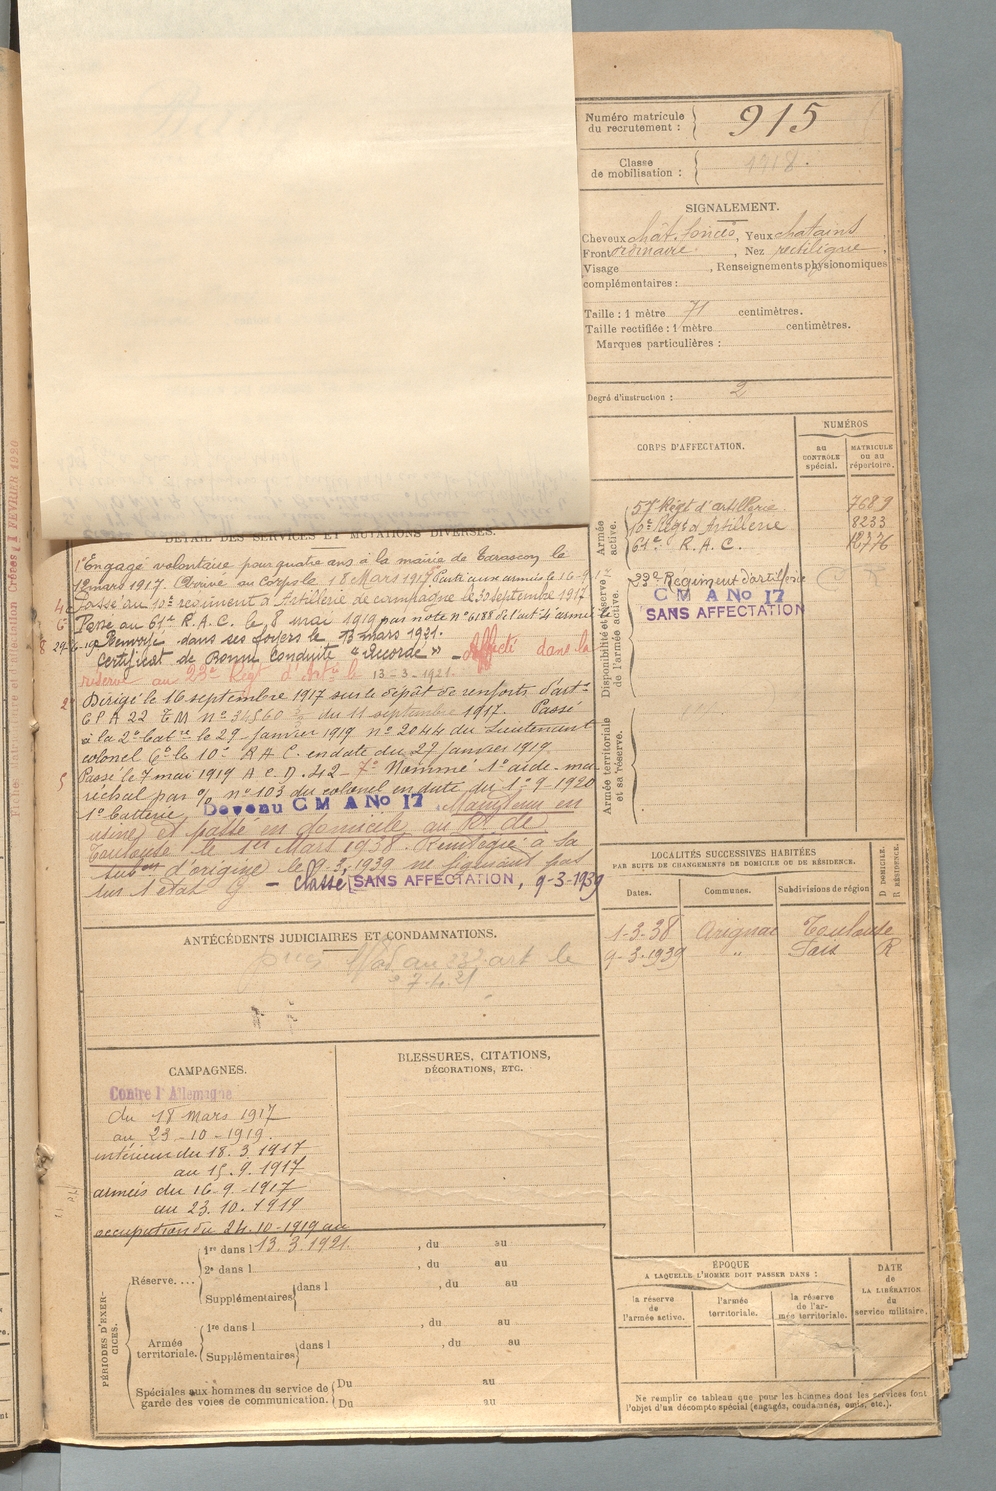 Numéro matricule
du recrutement : 915
Classe
de mobilisation : 1918.
SIGNALEMENT.
Cheveux chât. foncés, Yeux chatains
Front ordinaire, Nez rectiligne,
Visage , Renseignements physionomiques
complémentaires :
Taille : 1 mètre 71 centimètres.
Taille rectifiée : 1 mètre centimètres.
Marques particulières :
Degré d'instruction : 2
CORPS D'AFFECTATION.
NUMÉROS
AU CONTRÔLE spécial.
MATRICULE OU AU répertoire.
Armée active.
57e Régt d'artillerie. 7689
10e Régt d'Artillerie 8233
61e R.A.C. 12776
Disponibilité et réserve de l'armée active.
23e Régiment d'artillerie
C M A No 17
SANS AFFECTATION
Armée territoriale et sa réserve.
DÉTAIL DES SERVICES ET MUTATIONS DIVERSES.
1° Engagé volontaire pour quatre ans à la mairie de Tarascon le
mars 1917. Arrivé au corps le 18 Mars 1917. Parti aux armées le 16-9-
Passé au 10e regiment d'Artillerie de campagne le 30 septembre 1917
Passé au 61e R.A.C. le 8 mai 1919 par note n° 6188 de l'ait 4e armée
Renvoyé dans ses foyers le 13 mars 1921.
Certificat de Bonne Conduite "Accordé" - Affecté dans la
réserve au 23e Régt d'Artie le 13-3-1921.
2° Dirigé le 16 septembre 1917 sur le dépôt de renforts d'art
22 n° 34560 du 11 septembre 1917. Passé
à la 2e Batie le 29 janvier 1919 n° 2044 du Lieutenant
colonel Ct le 10e R A C. en date du 27 janvier 1919.
5 Passé le 7 mai 1919 A C D. 42 - 7° Nommé 1er aide-ma-
réchal par n° 103 du colonel en date du 1-9-1920
1e batterie Devenu C M A No 17 Maintenu en
usine et passé en domicile au Rt de
Toulouse le 1er Mars 1938. Réintégré à sa
subon d'origine le 9.3.1939 ne figurant pas
sur l'état - classé SANS AFFECTATION, 9-3-1939
ANTÉCÉDENTS JUDICIAIRES ET CONDAMNATIONS.
au 23e art le
LOCALITÉS SUCCESSIVES HABITÉES
PAR SUITE DE CHANGEMENTS DE DOMICILE OU DE RÉSIDENCE.
Dates. Communes. Subdivisions de région
D DOMICILE. R RÉSIDENCE.
1-3-38 Arignac Toulouse
9-3-1939 " Foix R
CAMPAGNES.
Contre l'Allemagne
du 18 mars 1917
au 23-10-1919.
intérieur du 18.3.1917
au 15.9.1917
armées du 16-9-1917
au 23.10.1919
occupation du 24.10-1919 au
13.3.1921.
BLESSURES, CITATIONS,
DÉCORATIONS, ETC.
PÉRIODES D'EXERCICES.
Réserve....
1re dans l , du au
2e dans l , du au
Supplémentaires dans l , du au
Armée territoriale.
1re dans l , du au
Supplémentaires dans l , du au
Spéciales aux hommes du service de
garde des voies de communication.
Du au
Du au
ÉPOQUE
A LAQUELLE L'HOMME DOIT PASSER DANS :
la réserve de l'armée active.
l'armée territoriale.
la réserve de l'armée territoriale.
DATE de LA LIBÉRATION du service militaire.
Ne remplir ce tableau que pour les hommes dont les services font
l'objet d'un décompte spécial (engagés, condamnés, omis, etc.).